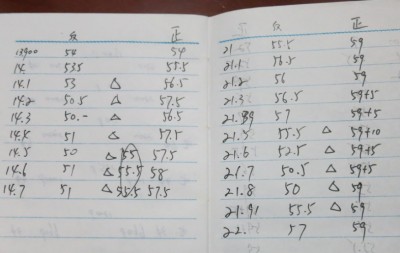 负 正
13900 54 54
14. 535 55.5
14.1 53 △ 56.5
14.2 50.5 △ 57.5
14.3 50.- △ 56.5
14.4 51 △ 57.5
14.5 50 △ 55 57.5
14.6 51 △ 55.5 58
14.7 51 △ 55.5 57.5
正
21. 55.5 59
21.1 56.5 59
21.2 56 59
21.3 56.5 59+5
57 59+5
21.5 55.5 △ 59+10
21.6 52.5 △ 59+5
21.7 50.5 △ 59+5
21.8 50 △ 59
21.91 55.5 △ 59
22. 57 59